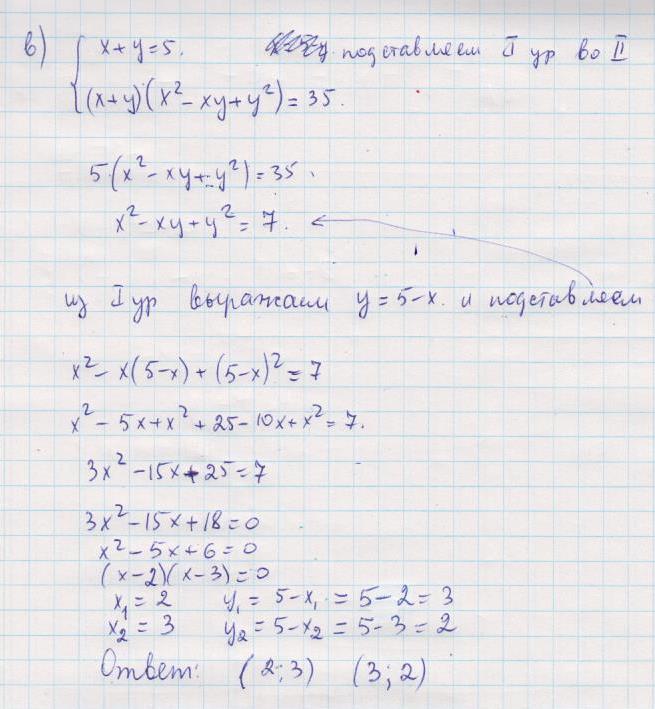 в) { x+y=5. подставляем I ур во II
(x+y)(x²-xy+y²)=35.
5·(x²-xy+y²)=35.
x²-xy+y²=7.
из I ур выражаем y=5-x. и подставляем
x²-x(5-x)+(5-x)²=7
x²-5x+x²+25-10x+x²=7.
3x²-15x+25=7
3x²-15x+18=0
x²-5x+6=0
(x-2)(x-3)=0
x₁=2 y₁=5-x₁=5-2=3
x₂=3 y₂=5-x₂=5-3=2
Ответ: (2;3) (3;2)